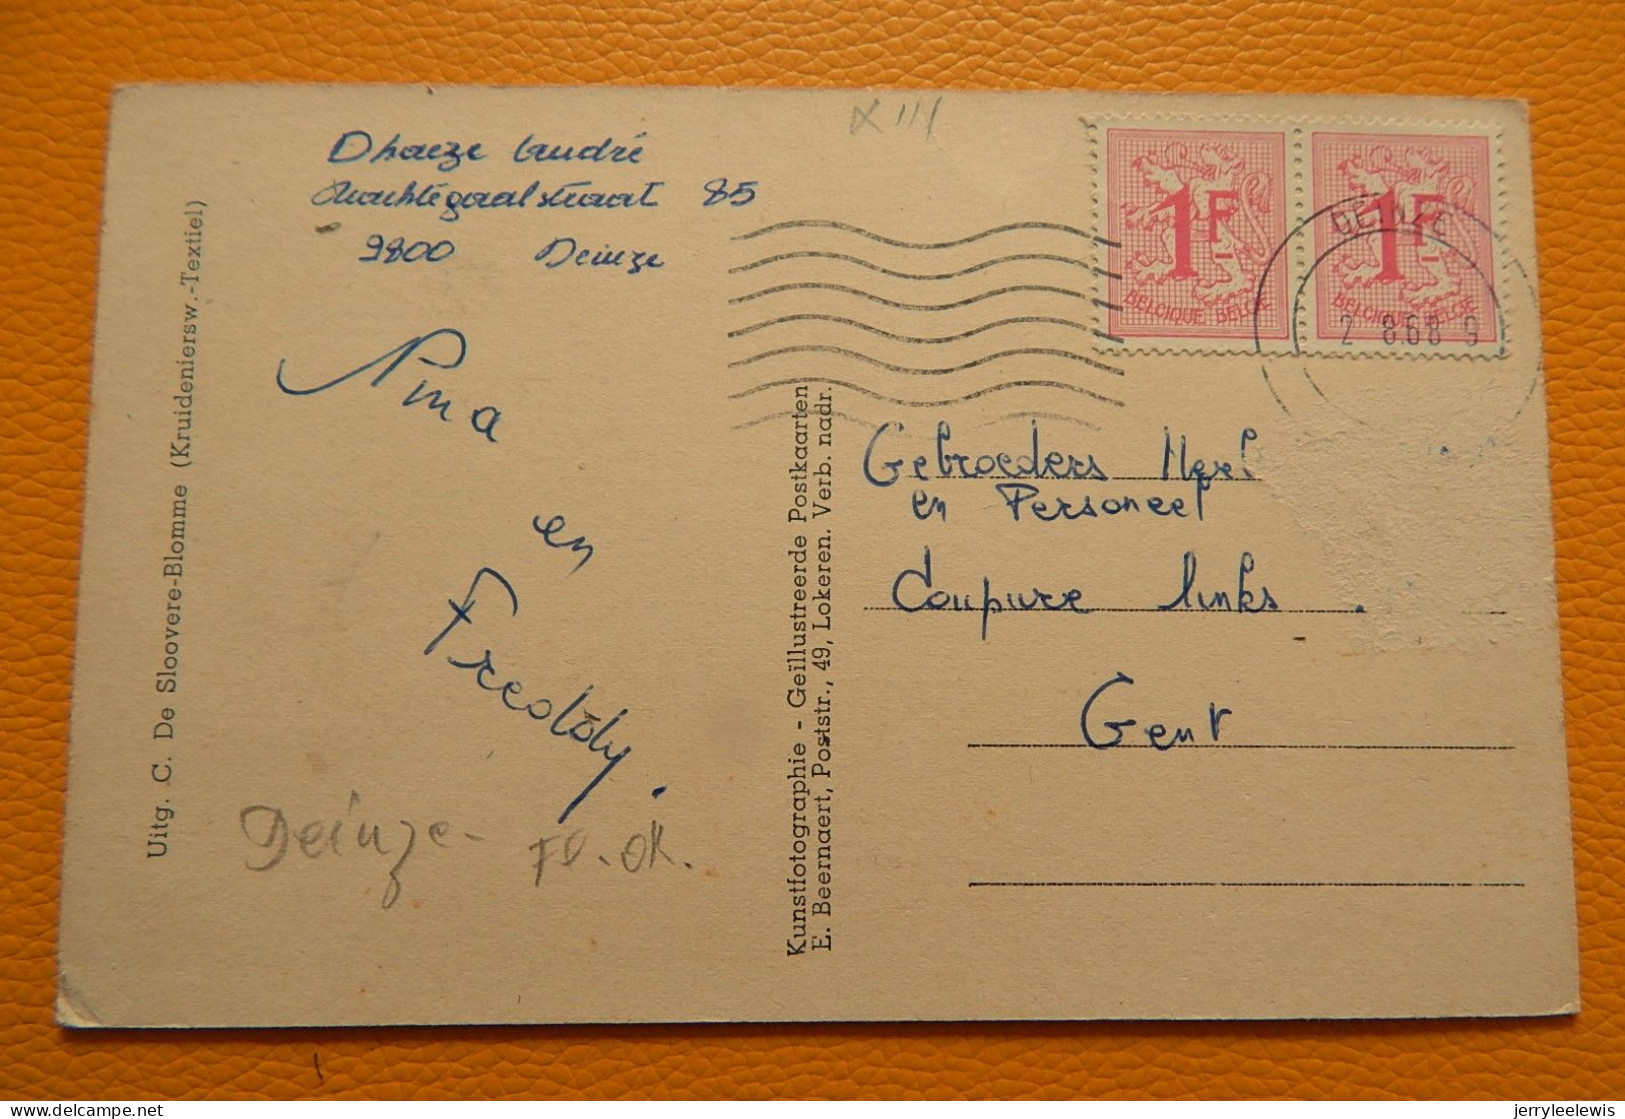 Dhaeze André
Nachtegaalstraat 85
9800 Deinze
Nina
en
Freddy.
Deinze-
Uitg. C. De Sloovere-Blomme (Kruideniersw.-Textiel)
Kunstfotographie - Geïllustreerde Postkaarten
E. Beernaert, Poststr., 49, Lokeren. Verb. nadr.
1F
BELGIQUE BELGIE
1F
BELGIQUE BELGIE
DEINZE
2 8.68 9
Gebroeders
en Personeel
Coupure links.
Gent
jerryleelewis